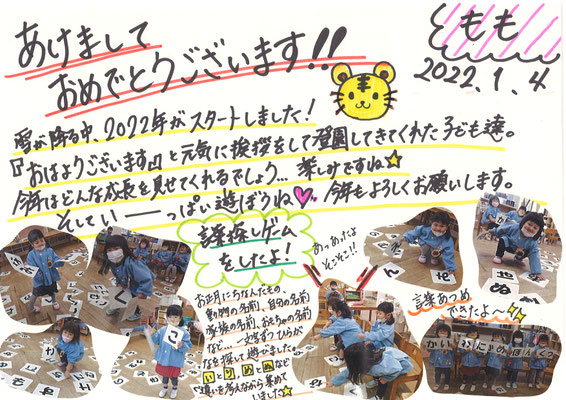 もも
2022.1.4
あけまして
おめでとうございます!!
雪が降る中、2022年がスタートしました!
『おはようございます』と元気に挨拶をして登園してきてくれた子ども達。
今年はどんな成長を見せてくれるでしょう…楽しみですね☆
そしてい――っぱい遊ぼうね♡今年もよろしくお願いします。
言葉探しゲーム
をしたよ!
お正月にちなんだもの、
食べ物の名前、自分の名前
家族の名前、おもちゃの名前
など…一文字ずつひらが
なを探して遊びました。
い と り、め と ぬ など
違いを考えながら集めて
いました☆
あっあったよ
そこそこ!!
言葉あつめ
できたよ〜
き
く
こ
か
け
せ
や
ぬ